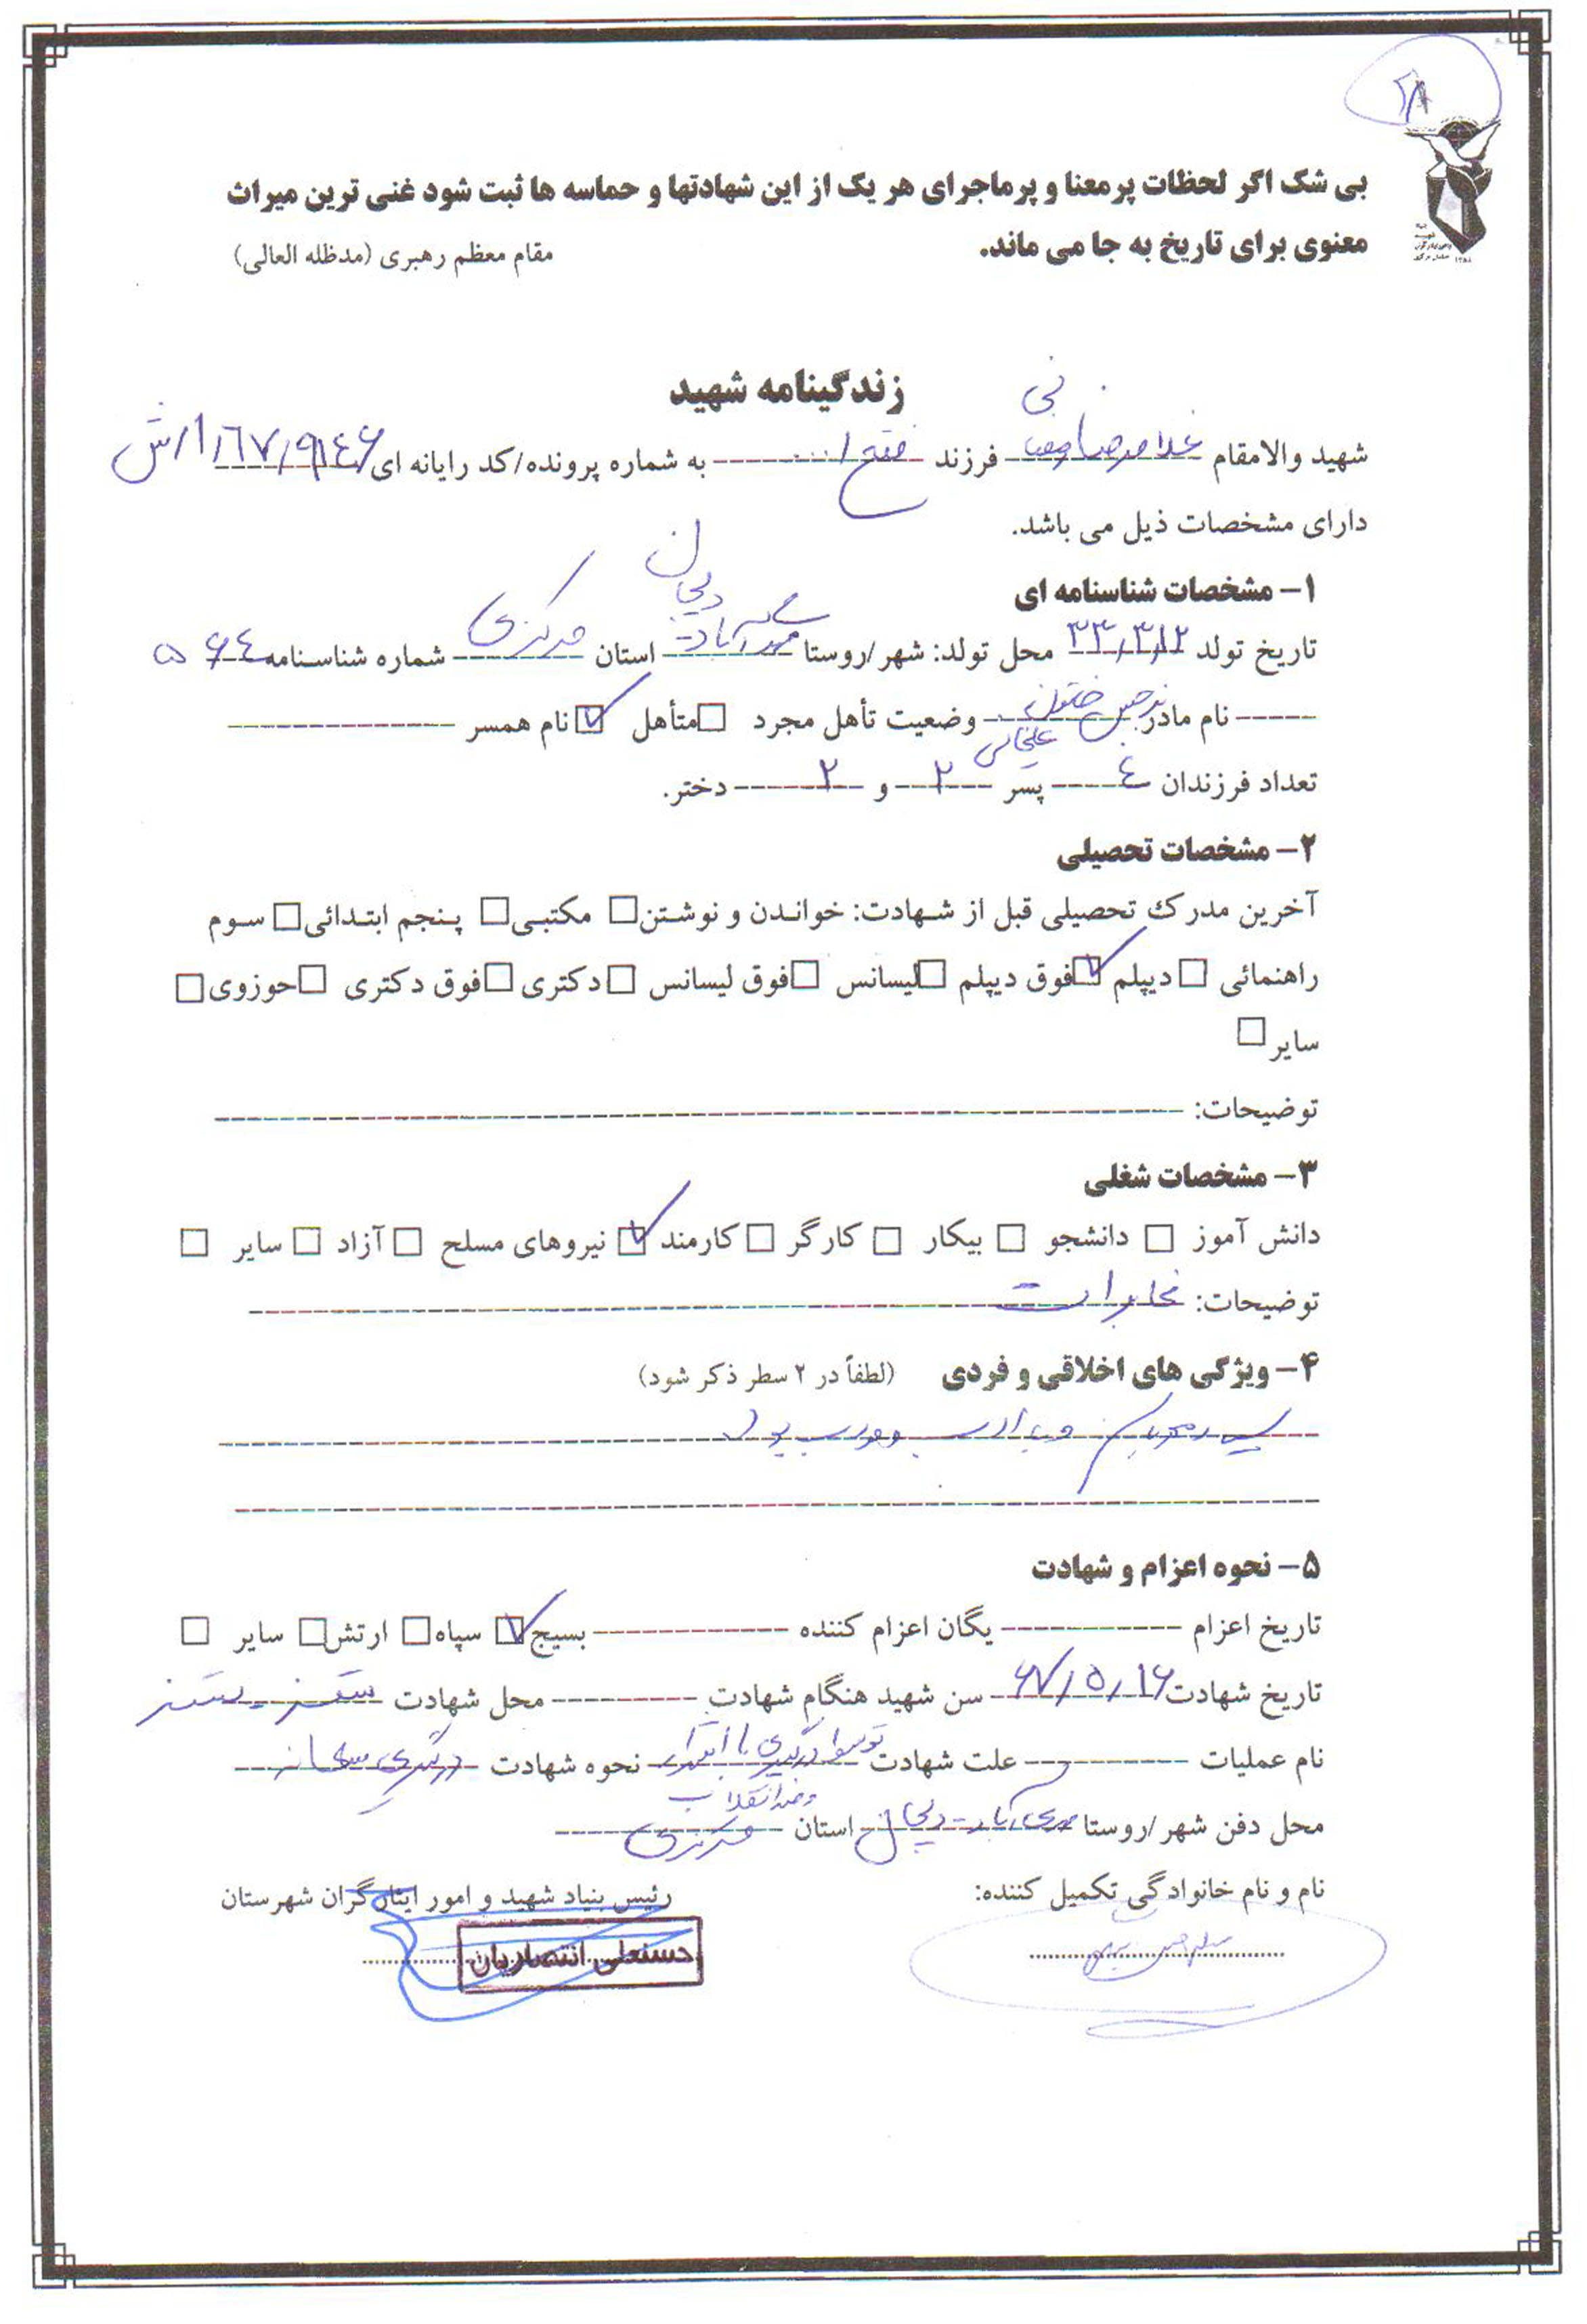 ۲۸
بی شک اگر لحظات پرمعنا و پرماجرای هر یک از این شهادتها و حماسه ها ثبت شود غنی ترین میراث
معنوی برای تاریخ به جا می ماند.
مقام معظم رهبری (مدظله العالی)
زندگینامه شهید
شهید والامقام غلامرضا فرزند فتح ا... به شماره پرونده/کد رایانه ای ۱/۶۷/۹۱۴۶/ش
دارای مشخصات ذیل می باشد.
۱- مشخصات شناسنامه ای
تاریخ تولد ۳۳/۳/۱۲ محل تولد: شهر/روستا دلیجان استان مرکزی شماره شناسنامه ۵۶۴
نام مادر نرجس خاتون علیخانی وضعیت تأهل مجرد □ متأهل ☑ نام همسر
تعداد فرزندان ۴ پسر ۲ و ۲ دختر.
۲- مشخصات تحصیلی
آخرین مدرک تحصیلی قبل از شهادت: خواندن و نوشتن □ مکتبی □ پنجم ابتدائی □ سوم
راهنمائی □ دیپلم ☑ فوق دیپلم □ لیسانس □ فوق لیسانس □ دکتری □ فوق دکتری □ حوزوی □
سایر □
توضیحات:
۳- مشخصات شغلی
دانش آموز □ دانشجو □ بیکار □ کارگر □ کارمند ☑ نیروهای مسلح □ آزاد □ سایر □
توضیحات: مخابرات
۴- ویژگی های اخلاقی و فردی (لطفاً در ۲ سطر ذکر شود)
بود
۵- نحوه اعزام و شهادت
تاریخ اعزام یگان اعزام کننده بسیج ☑ سپاه □ ارتش □ سایر □
تاریخ شهادت ۶۷/۵/۱۶ سن شهید هنگام شهادت محل شهادت سقز
نام عملیات علت شهادت توسط درگیری با اشرار و ضدانقلاب نحوه شهادت درگیری
محل دفن شهر/روستا دلیجان استان مرکزی
نام و نام خانوادگی تکمیل کننده:
رئیس بنیاد شهید و امور ایثارگران شهرستان
حسنعلی انتصاریان